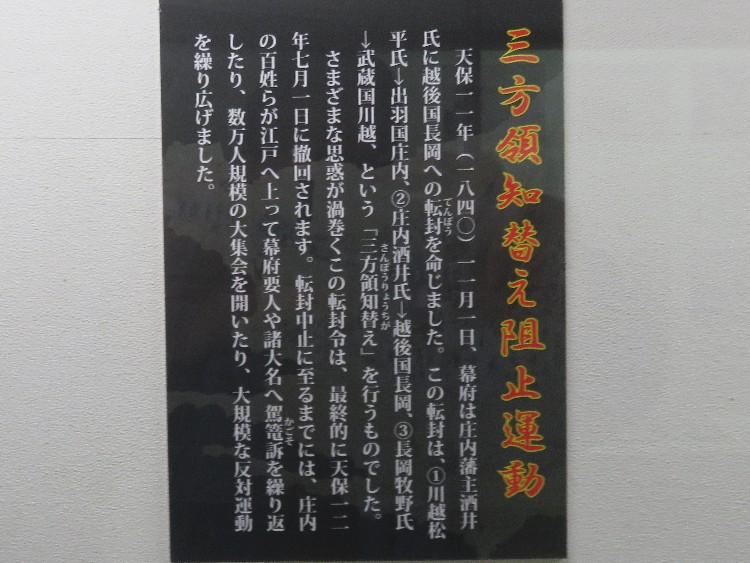 三方領知替え阻止運動
天保一一年（一八四〇）一一月一日、幕府は庄内藩主酒井
氏に越後国長岡への転封を命じました。この転封は、①川越松
てんぽう
平氏→出羽国庄内、②庄内酒井氏→越後国長岡、③長岡牧野氏
→武蔵国川越、という「三方領知替え」を行うものでした。
さんぽうりょうちが
さまざまな思惑が渦巻くこの転封令は、最終的に天保一二
年七月一日に撤回されます。転封中止に至るまでには、庄内
の百姓らが江戸へ上って幕府要人や諸大名へ駕篭訴を繰り返
かごそ
したり、数万人規模の大集会を開いたり、大規模な反対運動
を繰り広げました。